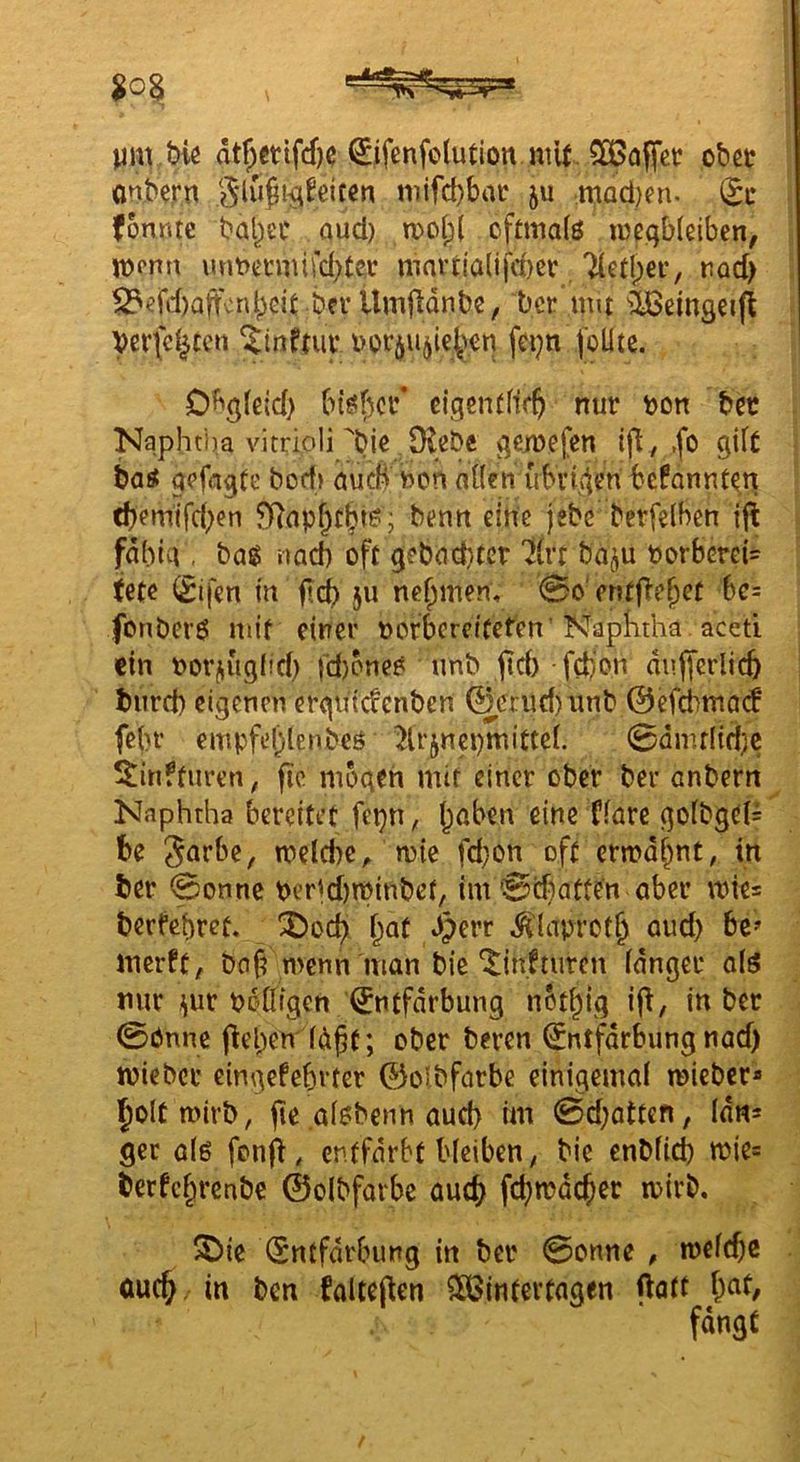 808
um die äthetisfche Eisensolution mit Wasser oder
andern Flüßigkeiten mischbar zu machen. Er
könnte daher auch wohl oftmals wegbleiben,
wenn unvermischter martialischer Aether, nach
Beschaffenheit der Umstände, der mit Weingeist
versetzten Tinktur vorzuziehen seyn sollte.
Obgleich bisher eigentlich nur von der
Naphtha vitrioli die Rede gewesen ist, so gilt
das gesagte doch auch von allen übrigen bekannten
chemischen Naphthis; denn eine jede derselben ist
fähig, das nach oft gedachter Art dazu vorberei-
tete Eisen in sich zu nehmen. So entstehet be-
sonders mit einer vorbereiteten Naphtha aceti
ein vorzüglich schönes und sich schon äusserlich
durch eigenen erquickenden Geruch und Geschmack
sehr empfehlendes Arzneymittel. Sämtliche
Tinkturen, sie mögen mit einer oder der andern
Naphtha bereitet seyn, haben eine klare goldgel-
be Farbe, welche, wie schon oft erwähnt, in
der Sonne verschwindet, im Schatten aber wie-
derkehret. Doch hat Herr Klaproth auch be-
merkt, daß wenn man die Tinkturen länger als
nur zur völligen Entfärbung nöthig ist, in der
Sonne stehen läßt; oder deren Entfärbung nach
wieder eingekehrter Goldfarbe einigemal wieder-
holt wird, sie alsdenn auch im Schatten, län-
ger als sonst, entfärbt bleiben, die endlich wie-
derkehrende Goldfarbe auch schwächer wird.
Die Entfärbung in der Sonne, welche
auch in den kaltesten Wintertagen statt hat,
fängt